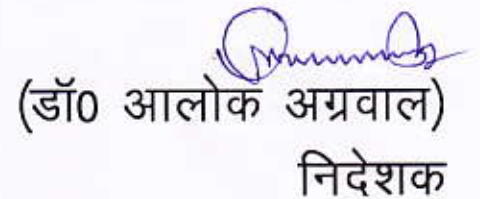 (डॉ0 आलोक अग्रवाल)
निदेशक